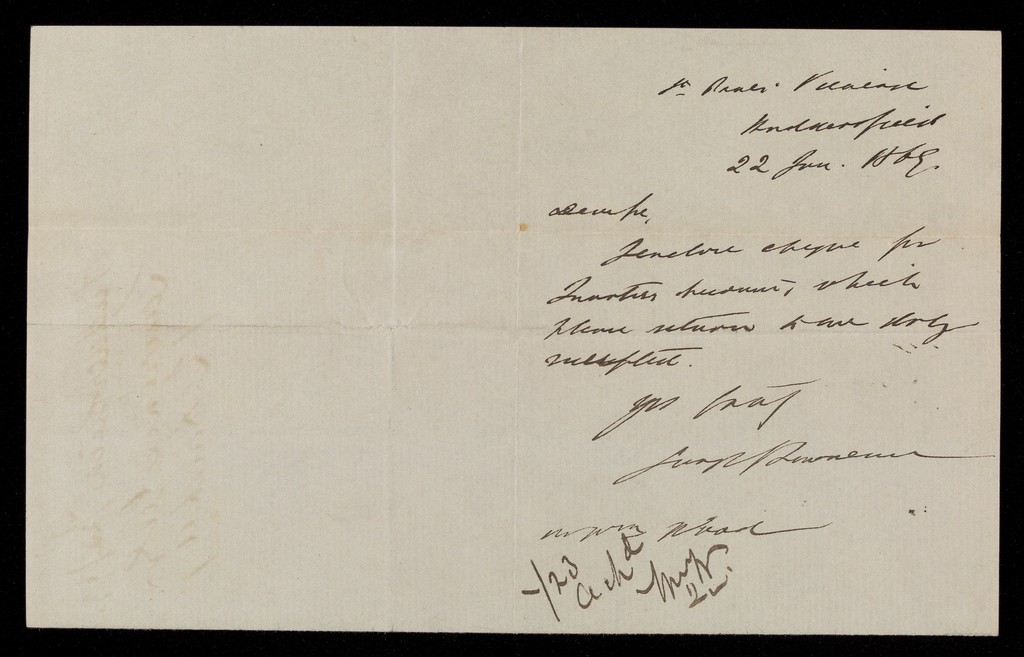 St Pauls Vicarage
Huddersfield
22 Jan. 1869.
Dear Sir,
I enclose cheque for
Quarters account, which
please return to me duly
receipted.
Yrs truly
Bownener
Mr Wm Wood
-/23
Ackd